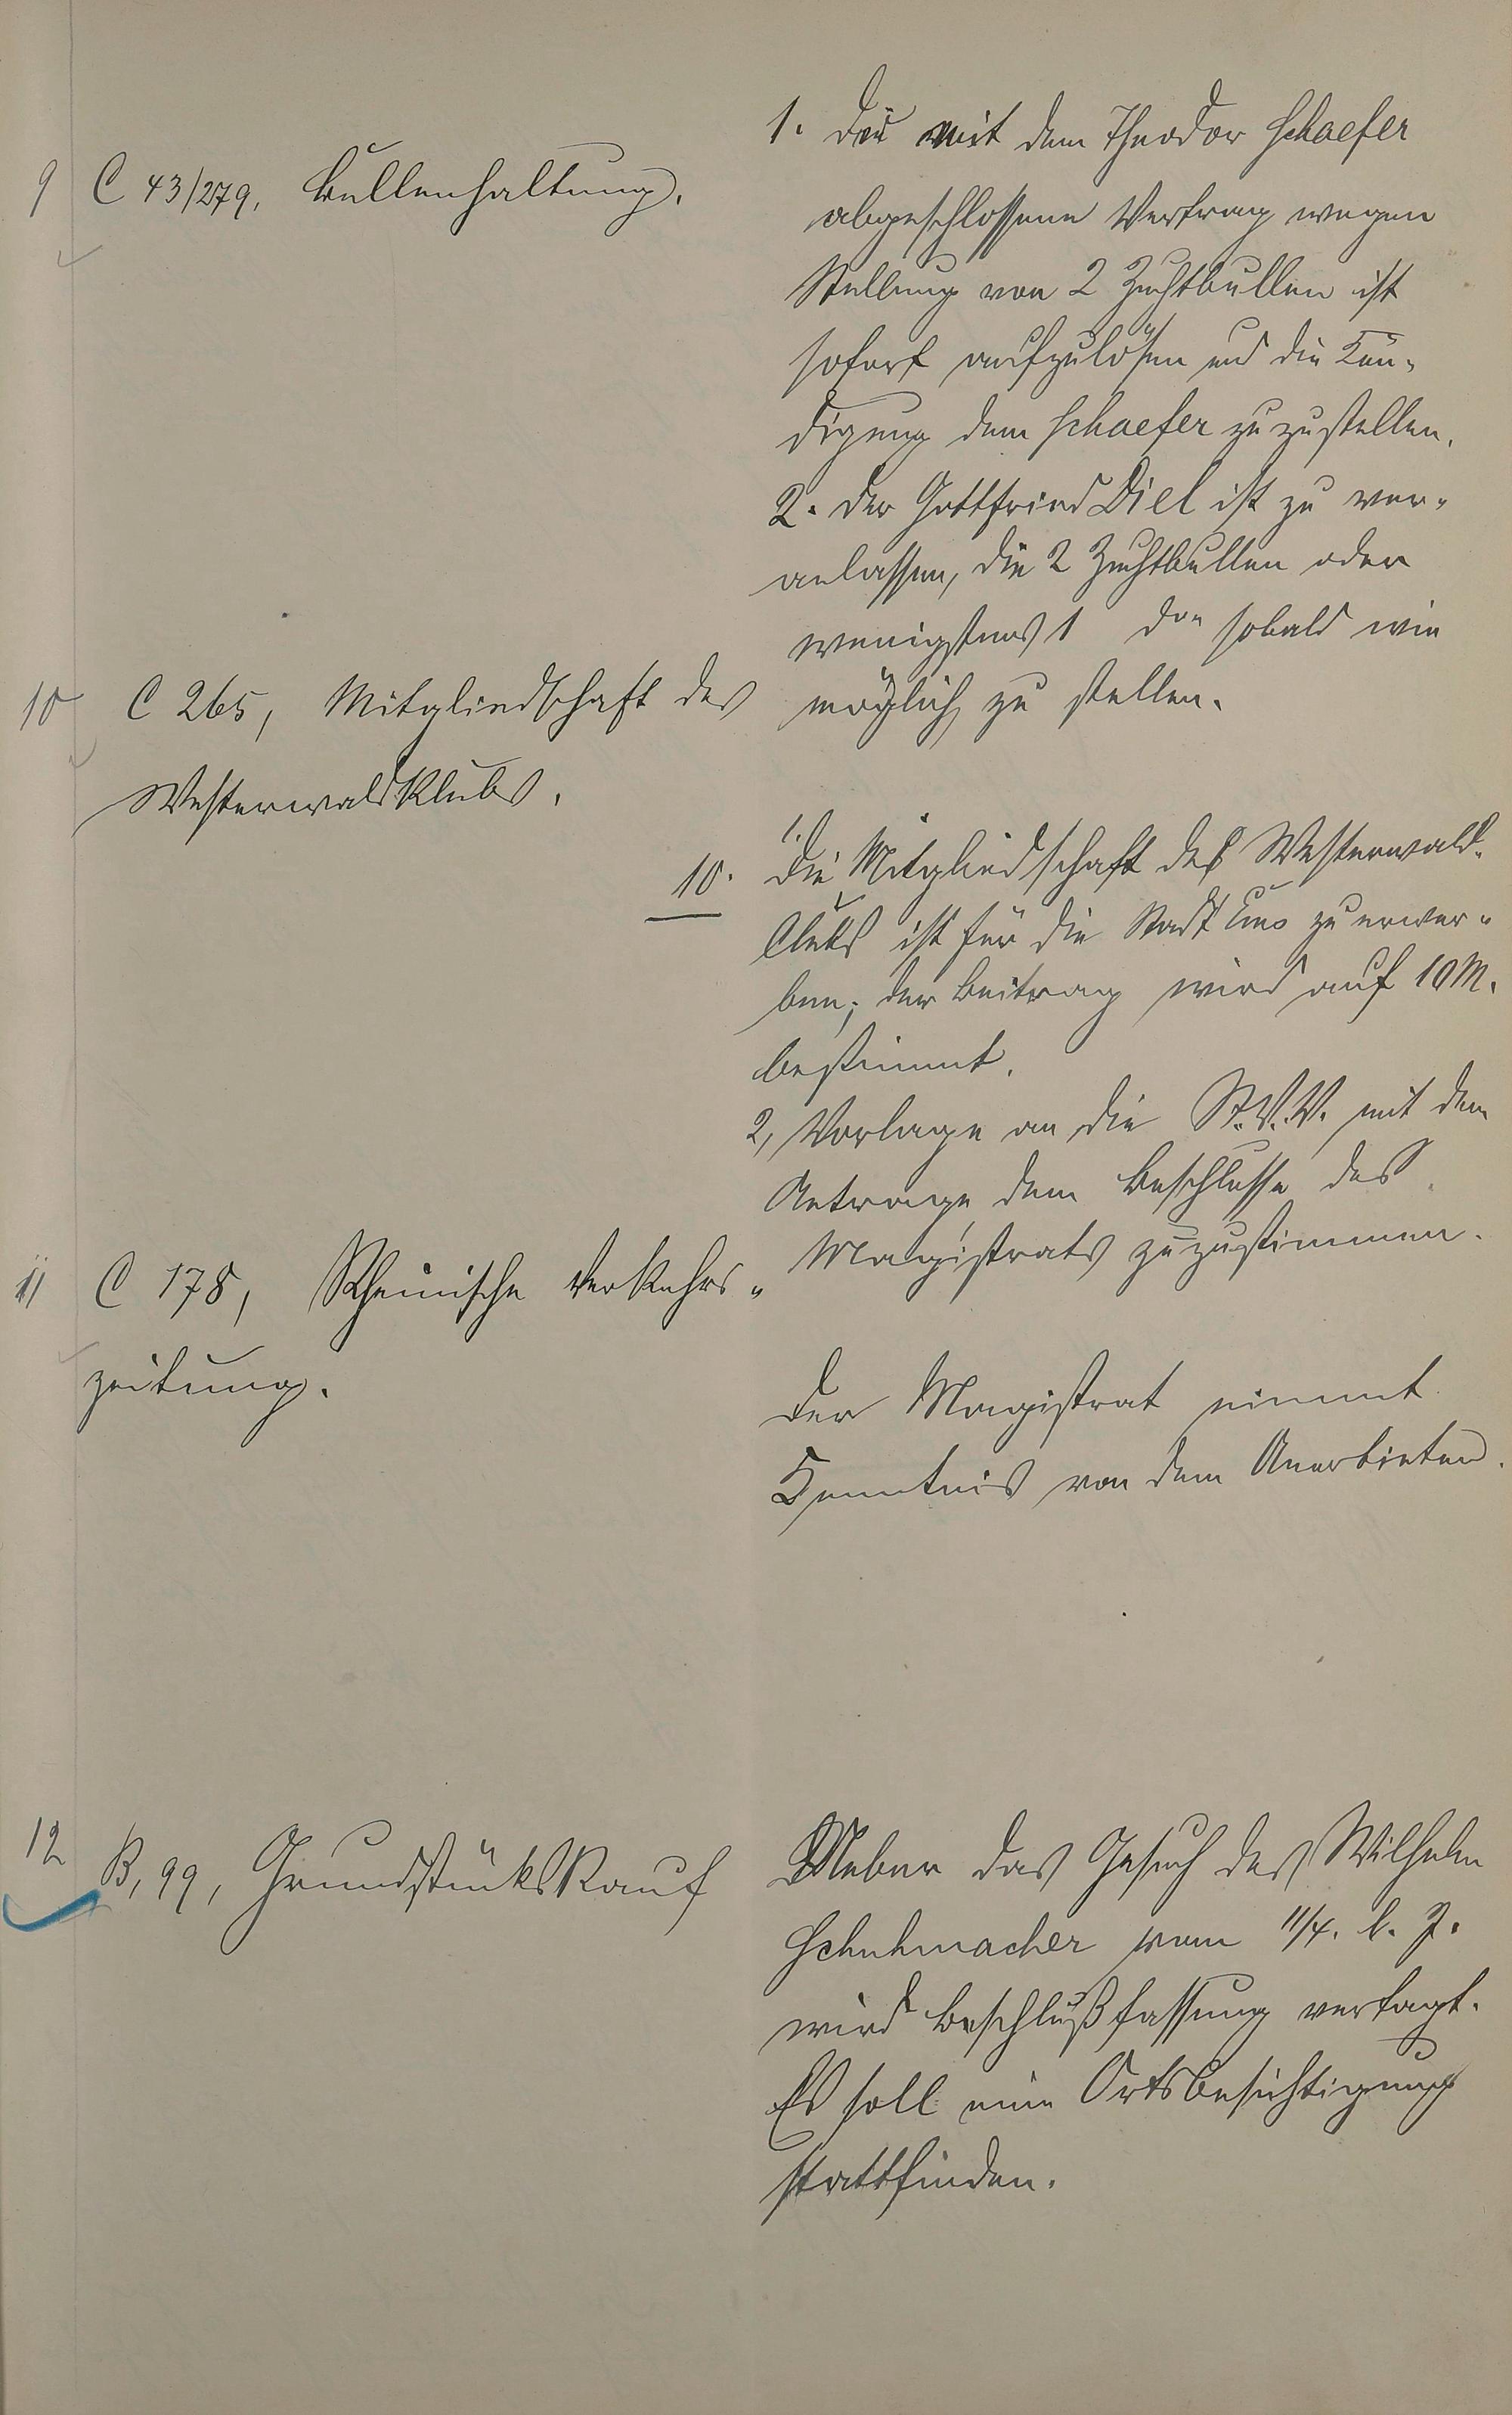 9 C 43/279, Bullenhaltung.
1. Der mit dem Theodor Schaefer
abgeschlossene Vertrag wegen
Stellung von 2 Zuchtbullen ist
sofort aufzulösen und die Kün-
digung dem Schaefer zuzustellen.
2. Der Gottfried Diel ist zu ver-
anlassen, die 2 Zuchtbullen oder
wenigstens 1 sobald wie
möglich zu stellen.
10 C 265, Mitgliedschaft des
Westerwaldklubs.
10. 1. Die Mitgliedschaft des Westerwald-
Clubs ist für die Stadt Ems zu erwer-
ben; der Beitrag wird auf 10 M.
bestimmt.
2, Vorlage an die St.V.V. mit dem
Antrage dem Beschlusse des
Magistrats zuzustimmen.
11 C 178, Rheinische Verkehrs-
zeitung.
Der Magistrat nimmt
Kenntnis von dem Anerbieten.
12 B, 99, Grundstückskauf
Ueber das Gesuch des Wilhelm
Schuhmacher vom 11/4. l. J.
wird Beschlußfassung vertagt.
Es soll eine Ortsbesichtigung
stattfinden.